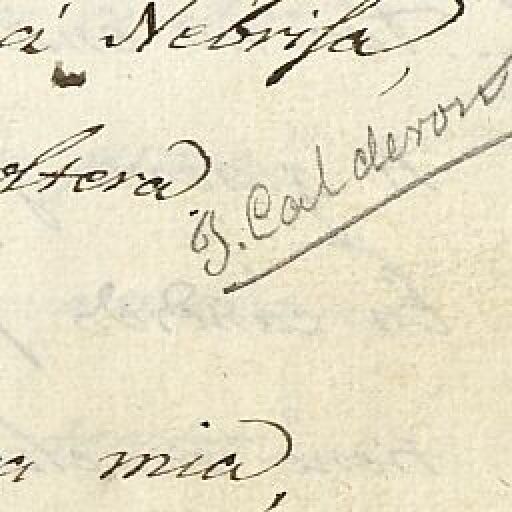 a Nebrisa,
ostera
J. Calderon
a mia,